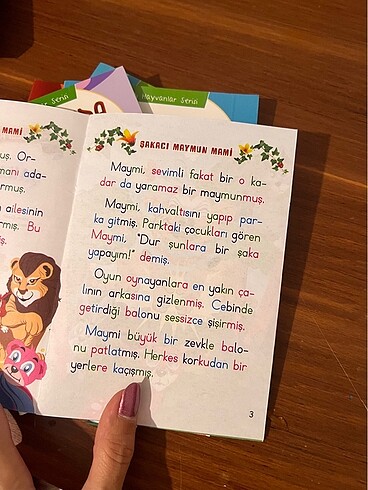 Serisi
Hayvanlar Serisi
MAMİ
uş. Or-
mani ada-
rmuş.
n ailesinin
rmiş. Bu
ŞAKACI MAYMUN MAMİ
Maymi, sevimli fakat bir o ka-
dar da yaramaz bir maymunmuş.
Maymi, kahvaltısını yapıp par-
ka gitmiş. Parktaki çocukları gören
Maymi, "Dur şunlara bir şaka
yapayım!" demiş.
Oyun oynayanlara en yakın ça-
lının arkasına gizlenmiş. Cebinde
getirdiği balonu sessizce şişirmiş.
Maymi büyük bir zevkle balo-
nu patlatmış. Herkes korkudan bir
yerlere kaçışmış.
3